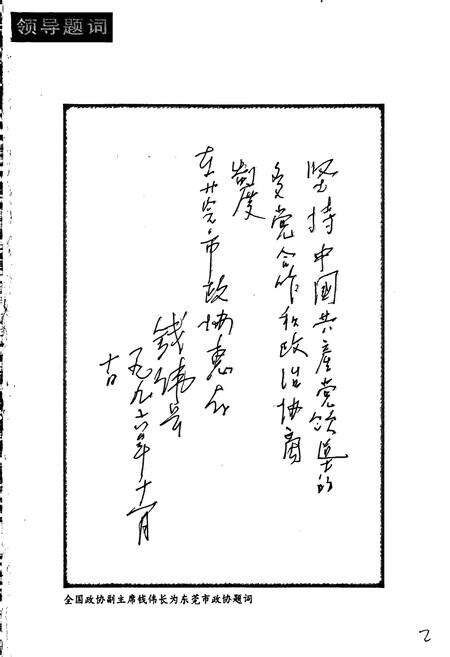 领导题词
坚持中国共產党领導的
多党合作和政治协商
制度
东莞市政协惠存
钱伟长
一九九六年十一月
全国政协副主席钱伟长为东莞市政协题词
2